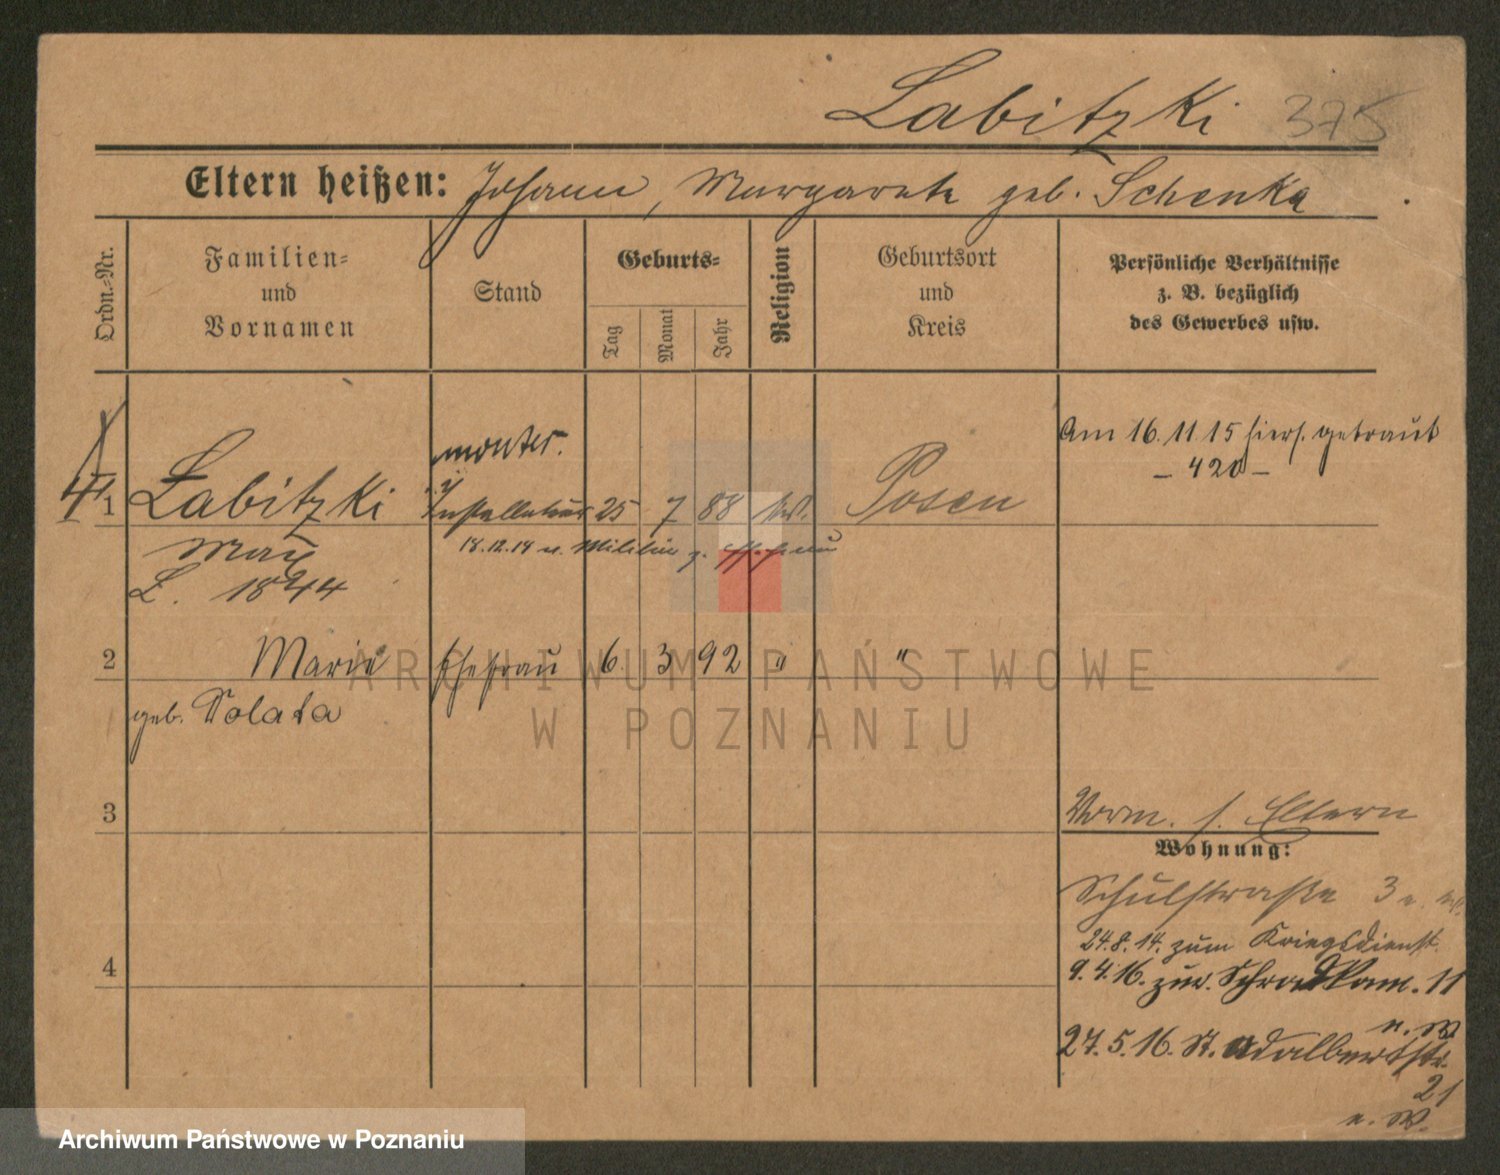 Labitzki 375
Eltern heißen: Johann, Margarete geb. Schenka
Ordn.-Nr.
Familien-
und
Vornamen
Stand
Geburts-
Tag
Monat
Jahr
Religion
Geburtsort
und
Kreis
Persönliche Verhältnisse
z. B. bezüglich
des Gewerbes usw.
Am 16.11 15 hiers. getraut
- 420 -
monter.
1 Labitzki Installateur 25 7 88 Posen
18.12.18 v. Militär z.
Max
L. 1844
2 Marie Ehefrau 6. 3 92 " "
geb. Solata
ARCHIWUM PAŃSTWOWE
W POZNANIU
3
Vorm. s. Eltern
Wohnung:
Schulstraße 3
24.8.14. zum Kriegsdienst.
4
9.4.16. zur. 11
n. W.
27.5.16. St. Adalbertstr.
21
n. W.
Archiwum Państwowe w Poznaniu